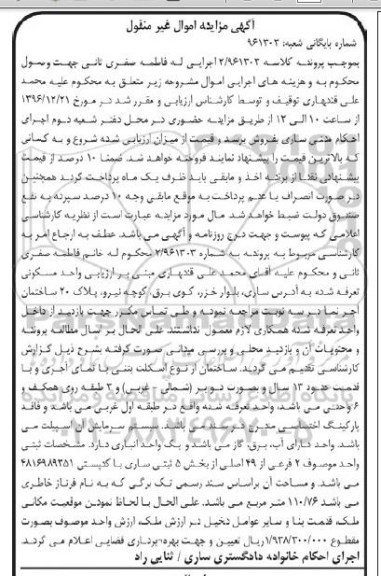 آگهی مزایده اموال غیر منقول
شماره بایگانی شعبه: ۹۶۱۳۰۲
بموجب پرونده کلاسه ۲/۹۶۱۳۰۲ اجرایی له فاطمه صفری ثانی جهت وصول
محکوم به و هزینه های اجرایی اموال مشروحه زیر متعلق به محکوم علیه محمد
علی قندهاری توقیف و توسط کارشناس ارزیابی و مقرر شد در مورخ ۱۳۹۶/۱۲/۲۱
از ساعت ۱۰ الی ۱۲ از طریق مزایده حضوری در محل دفتر شعبه دوم اجرای
احکام مدنی ساری بفروش برسد و قیمت از میزان ارزیابی شده شروع و به کسانی
که بالاترین قیمت را پیشنهاد نمایند فروخته خواهد شد. ضمنا ۱۰ درصد از قیمت
پیشنهادی نقدا از برنده اخذ و مابقی باید ظرف یک ماه پرداخت گردد همچنین
در صورت انصراف یا عدم پرداخت به موقع مابقی وجه ۱۰ درصد سپرده به نفع
صندوق دولت ضبط خواهد شد. مال مورد مزایده عبارت است از نظریه کارشناسی
اعلامی که پیوست و جهت درج روزنامه و آگهی می باشد. عطف به ارجاع امر به
کارشناسی مربوط به پرونده به شماره ۲/۹۶۱۳۰۳ محکوم له خانم فاطمه صفری
ثانی و محکوم علیه آقای محمد علی قندهاری مبنی بر ارزیابی واحد مسکونی
تعرفه شده به آدرس ساری، بلوار خزر، کوی برق، کوچه نیرو، پلاک ۲۰ ساختمان
آجر نما در سه نوبت مراجعه نموده و طی تماس مکرر جهت بازدید از داخل
واحد تعرفه شده همکاری لازم معمول نداشتند علی الحال بر اساس مطالعه پرونده
و محتویات آن و بازدید محلی و بررسی میدانی صورت گرفته بشرح ذیل گزارش
کارشناسی تقدیم می گردد. ساختمان از نوع اسکلت بتنی با نمای آجری و با
قدمت حدود ۱۳ سال و بصورت دو بر (شمالی - غربی) و ۳ طبقه روی همکف و
۶ واحدی می باشد. واحد تعرفه شده واقع در طبقه اول غربی می باشد و فاقد
پارکینگ اختصاصی مندرج در سند می باشد. سیستم سرمایش آن اسپیلت می
باشد. واحد دارای آب، برق، گاز می باشد و یک واحد انباری دارد. مشخصات ثبتی
واحد موصوف ۲ فرعی از ۴۹ اصلی از بخش ۵ ثبتی ساری با کدپستی ۴۸۱۶۹۸۹۳۵۱
می باشد. و مساحت آن براساس سند رسمی تک برگی که به نام فرناز خاطری
می باشد ۱۱۰/۷۶ متر مربع می باشد. علی الحال با لحاظ نمودن موقعیت مکانی
ملک، قدمت بنا و سایر عوامل دخیل در ارزش ملک، ارزش واحد موصوف بصورت
مقطوع ۱/۹۳۸/۳۰۰/۰۰۰ ریال تعیین و جهت بهره-برداری قضایی اعلام می گردد.
اجرای احکام خانواده دادگستری ساری / ثنایی راد